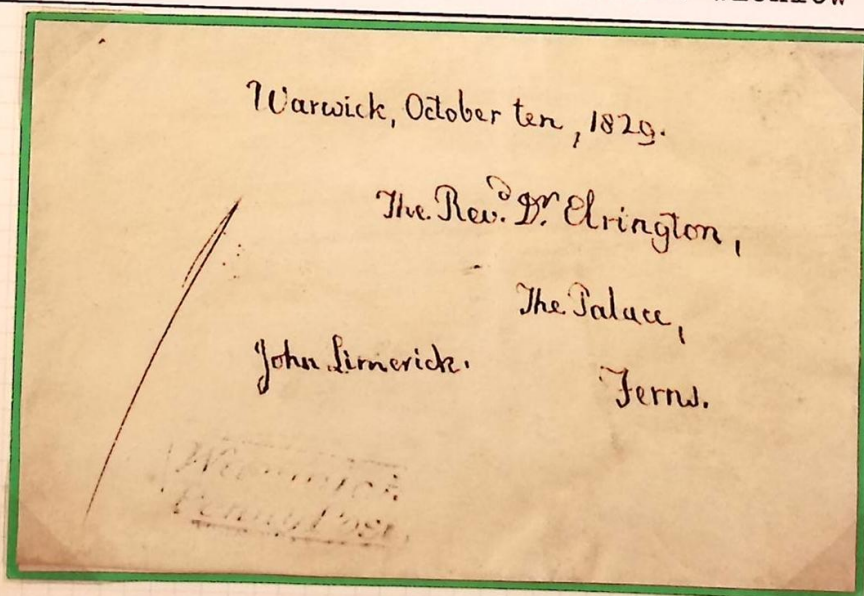 Warwick, October ten, 1829.
The Rev.d Dr. Elrington,
The Palace,
John Limerick.
Ferns.